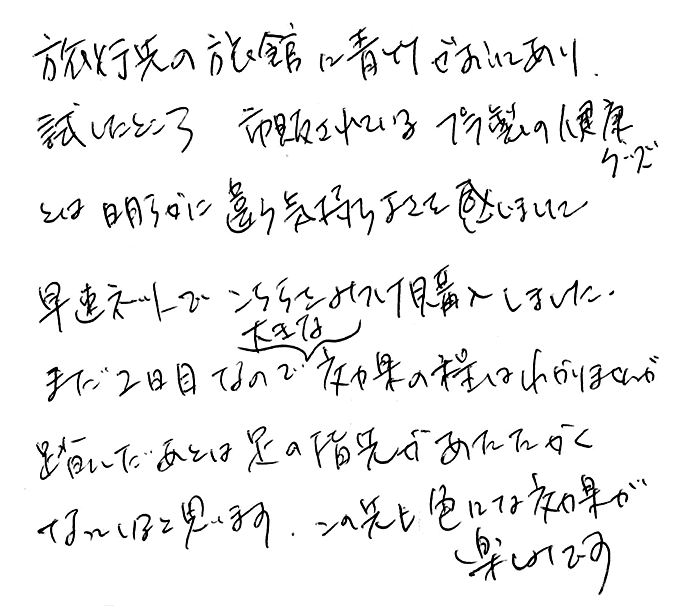 旅行先の旅館に青竹がおいてあり、
試したところ 市販されているプラ製の健康
グッズ
とは明らかに違う気持ちよさを感じまして
早速ネットでこちらをみつけ購入しました。
大きな
まだ2日目なので効果の程はわかりませんが
踏んだあとは足の指先があたたかく
なっていると思います。この先も色々な効果が
楽しみです